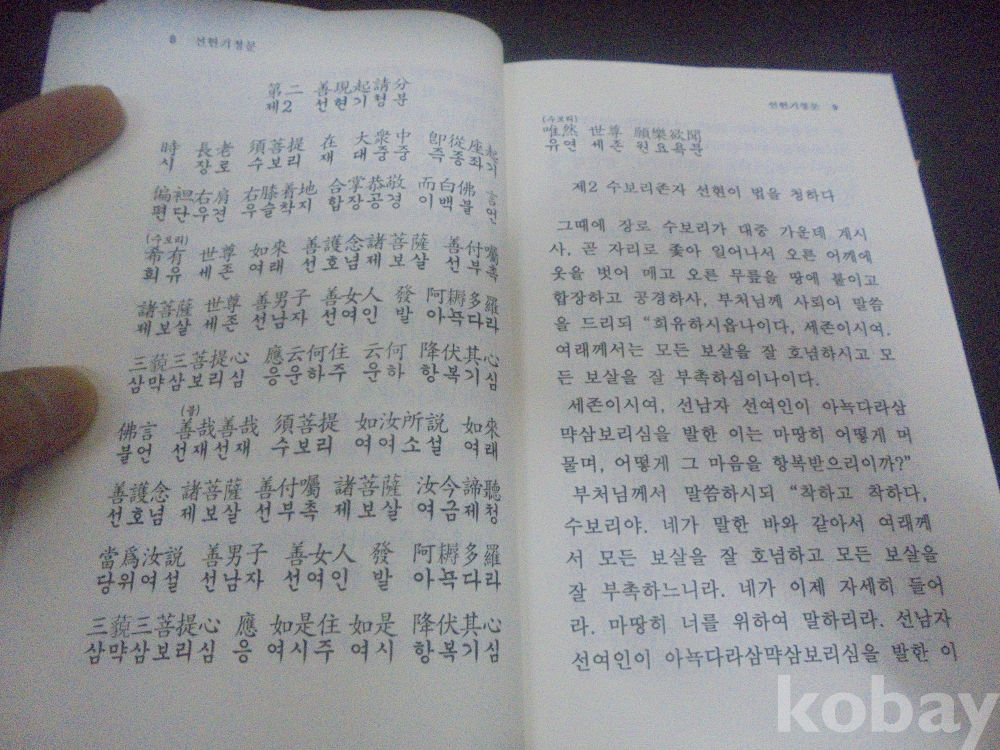 8 선현기청분
第二 善現起請分
제2 선현기청분
時 長老 須菩提 在 大衆中 卽從座起
시 장로 수보리 재 대중중 즉종좌기
偏袒右肩 右膝着地 合掌恭敬 而白佛 言
편단우견 우슬착지 합장공경 이백불 언
(수보리)
希有 世尊 如來 善護念諸菩薩 善付囑
희유 세존 여래 선호념제보살 선부촉
諸菩薩 世尊 善男子 善女人 發 阿耨多羅
제보살 세존 선남자 선여인 발 아뇩다라
三藐三菩提心 應云何住 云何 降伏其心
삼먁삼보리심 응운하주 운하 항복기심
佛言 善哉善哉 須菩提 如汝所說 如來
불언 선재선재 수보리 여여소설 여래
善護念 諸菩薩 善付囑 諸菩薩 汝今諦聽
선호념 제보살 선부촉 제보살 여금제청
當爲汝說 善男子 善女人 發 阿耨多羅
당위여설 선남자 선여인 발 아뇩다라
三藐三菩提心 應 如是住 如是 降伏其心
삼먁삼보리심 응 여시주 여시 항복기심
선현기청분 9
(수보리)
唯然 世尊 願樂欲聞
유연 세존 원요욕문
제2 수보리존자 선현이 법을 청하다
그때에 장로 수보리가 대중 가운데 계시
사, 곧 자리로 좇아 일어나서 오른 어깨에
옷을 벗어 메고 오른 무릎을 땅에 붙이고
합장하고 공경하사, 부처님께 사뢰어 말씀
을 드리되 “희유하시옵나이다, 세존이시여.
여래께서는 모든 보살을 잘 호념하시고 모
든 보살을 잘 부촉하심이나이다.
세존이시여, 선남자 선여인이 아뇩다라삼
먁삼보리심을 발한 이는 마땅히 어떻게 머
물며, 어떻게 그 마음을 항복받으리이까?”
부처님께서 말씀하시되 “착하고 착하다,
수보리야. 네가 말한 바와 같아서 여래께
서 모든 보살을 잘 호념하고 모든 보살을
잘 부촉하느니라. 네가 이제 자세히 들어
라. 마땅히 너를 위하여 말하리라. 선남자
선여인이 아뇩다라삼먁삼보리심을 발한 이
kobay